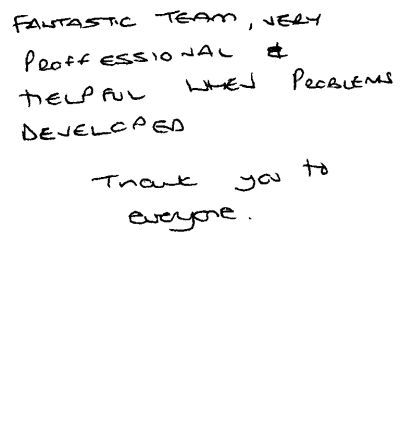 FANTASTIC TEAM, VERY
PROFFESSIONAL &
HELPFUL WHEN PROBLEMS
DEVELOPED
Thank you to
everyone.